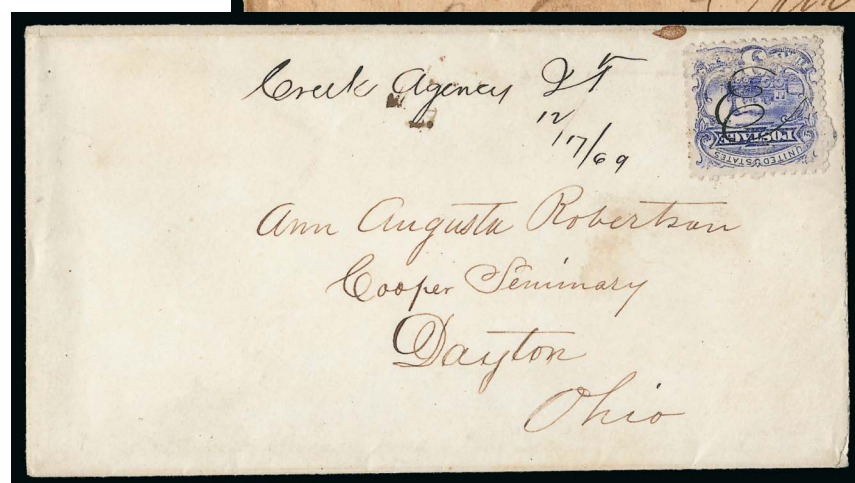 Creek Agency I T
12
/17/69
UNITED STATES
POSTAGE
Ann Augusta Robertson
Cooper Seminary
Dayton
Ohio